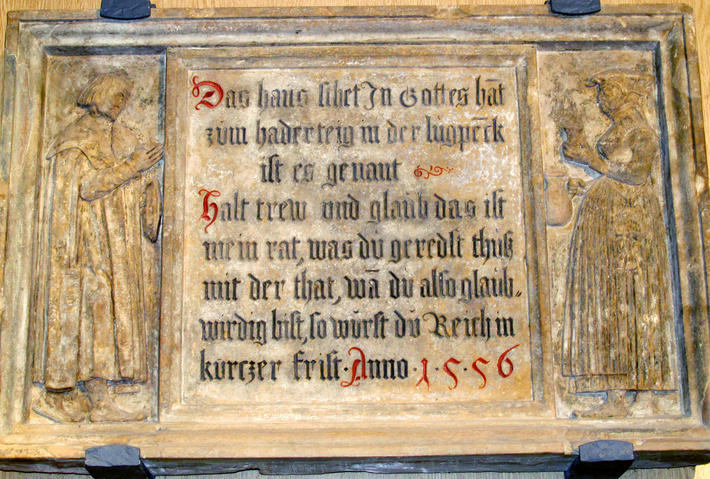 Das haus sthet Jn Gottes hāt
zum haderteig in der lugpēck
ist es genant
Halt trew und glaub das ist
mein rat, was du geredst thuß
mit der that, wā du also glaub-
wirdig bist, so würst du Reich in
kurczer frist · Anno · 1 · 5 · 5 6